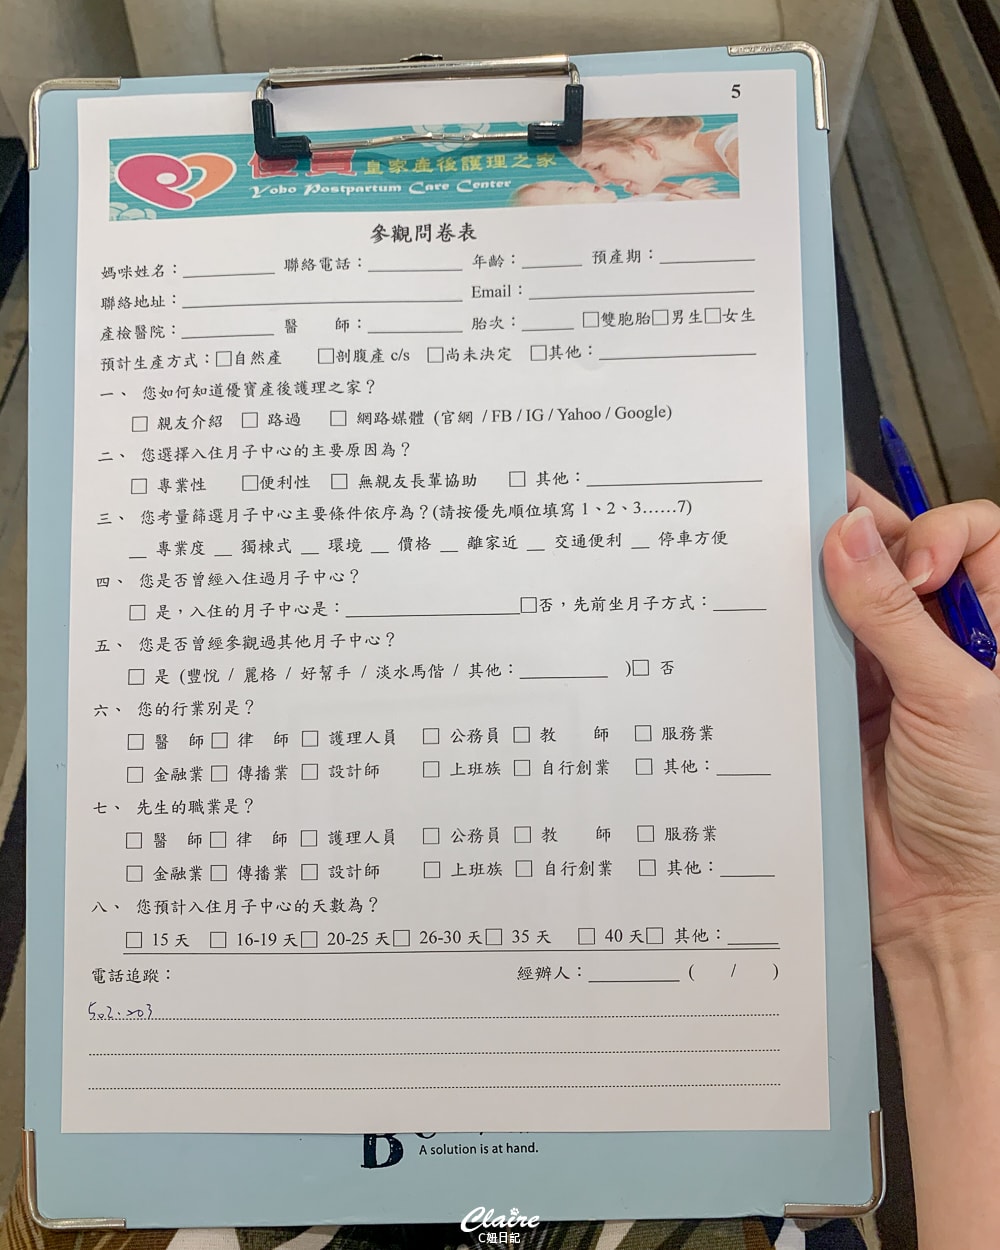 5
優寶 皇家產後護理之家
Yobo Postpartum Care Center
參觀問卷表
媽咪姓名：________ 聯絡電話：________ 年齡：_____ 預產期：________
聯絡地址：________________________ Email：____________________
產檢醫院：________ 醫 師：________ 胎次：____ □雙胞胎□男生□女生
預計生產方式：□自然產 □剖腹產 c/s □尚未決定 □其他：______________
一、 您如何知道優寶產後護理之家？
□ 親友介紹 □ 路過 □ 網路媒體 (官網 / FB / IG / Yahoo / Google)
二、 您選擇入住月子中心的主要原因為？
□ 專業性 □便利性 □ 無親友長輩協助 □ 其他：________________
三、 您考量篩選月子中心主要條件依序為？(請按優先順位填寫 1、2、3……7)
__ 專業度 __ 獨棟式 __ 環境 __ 價格 __ 離家近 __ 交通便利 __ 停車方便
四、 您是否曾經入住過月子中心？
□ 是，入住的月子中心是：________________□否，先前坐月子方式：_____
五、 您是否曾經參觀過其他月子中心？
□ 是 (豐悅 / 麗格 / 好幫手 / 淡水馬偕 / 其他：________ )□ 否
六、 您的行業別是？
□ 醫 師 □ 律 師 □ 護理人員 □ 公務員 □ 教 師 □ 服務業
□ 金融業 □ 傳播業 □ 設計師 □ 上班族 □ 自行創業 □ 其他：_____
七、 先生的職業是？
□ 醫 師 □ 律 師 □ 護理人員 □ 公務員 □ 教 師 □ 服務業
□ 金融業 □ 傳播業 □ 設計師 □ 上班族 □ 自行創業 □ 其他：_____
八、 您預計入住月子中心的天數為？
□ 15 天 □ 16-19 天□ 20-25 天□ 26-30 天□ 35 天 □ 40 天□ 其他：_____
電話追蹤： 經辦人：________ ( / )
A solution is at hand.
Claire
C妞日記